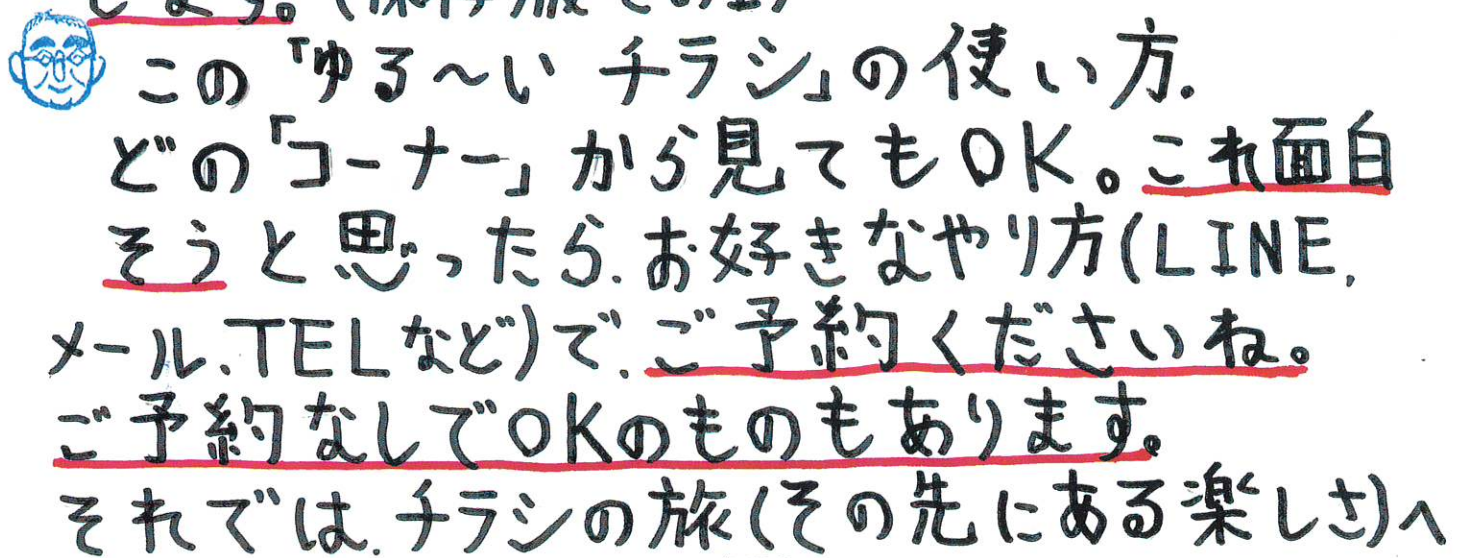 します。(保存版です)
この「ゆる〜い チラシ」の使い方.
どの「コーナー」から見てもOK。これ面白
そうと思ったら、お好きなやり方(LINE、
メール、TELなど)で、ご予約くださいね。
ご予約なしでOKのものもあります。
それでは、チラシの旅(その先にある楽しさ)へ